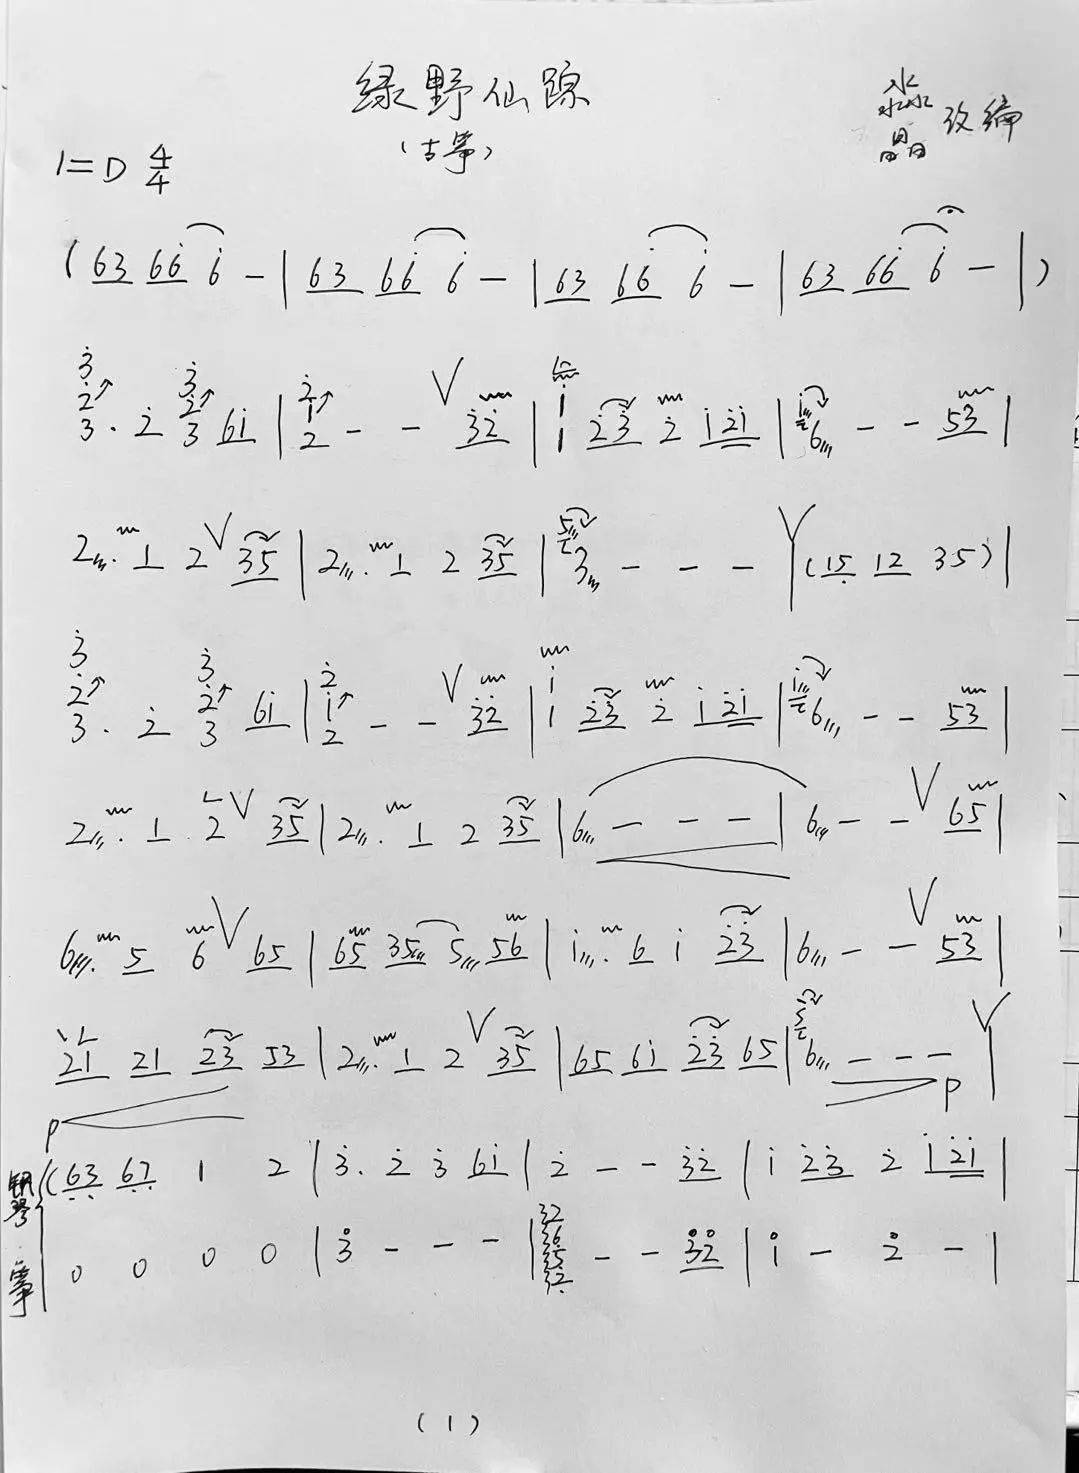 绿野仙踪
(古筝)
淼晶 改编
1=D 4/4
(63 66̇ 6̇ - | 63 66̇ 6̇ - | 63 66̇ 6̇ - | 63 66̇ 6̇ - |)
3̇ 2̇ 3 . 2̇ 3̇ 2̇ 3 61̇ | 2̇ 1̇ 2 - - V 3̇2̇ | 1̇ 1 2̇3̇ 2̇ 1̇2̇1̇ | 1̇ 6 - - 53 |
2 . 1 2 V 35 | 2 . 1 2 35 | 5 3 - - - | (15̣ 12 35) |
3̇ 2̇ 3 . 2̇ 3̇ 2̇ 3 61̇ | 2̇ 1̇ 2 - - V 3̇2̇ | 1̇ 1 2̇3̇ 2̇ 1̇2̇1̇ | 1̇ 6 - - 53 |
2 . 1 2 V 35 | 2 . 1 2 35 | 6 - - - | 6 - - V 65 |
6 . 5 6 V 65 | 65 35 5 56 | 1̇ . 6 1̇ 2̇3̇ | 6 - - V 53 |
21 21 23 53 | 2 . 1 2 V 35 | 65 61̇ 2̇3̇ 65 | 6 - - - V |
p p
钢琴 (6̣3 6̣7̣ 1 2 | 3̇ . 2̇ 3̇ 61̇ | 2̇ - - 3̇2̇ | 1̇ 2̇3̇ 2̇ 1̇2̇1̇ |
筝 0 0 0 0 | 3̇ - - - | - - 3̇2̇ | 1̇ - 2̇ - |
(1)